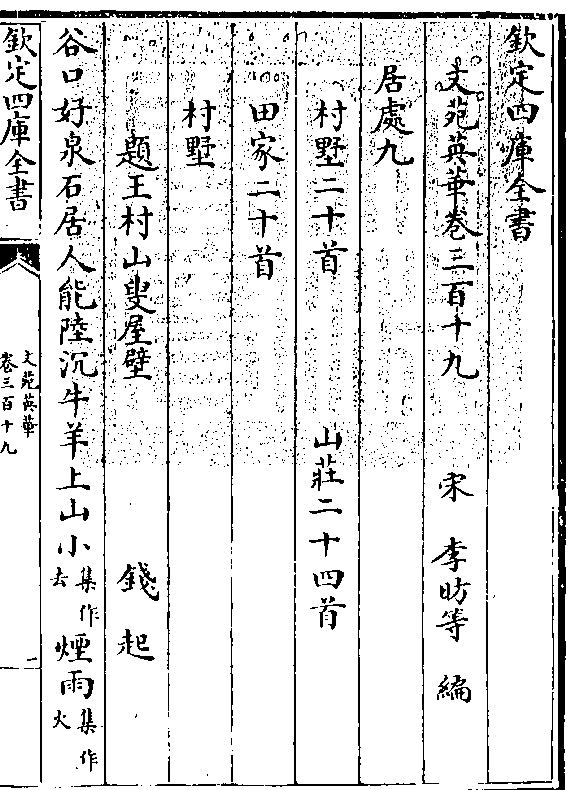 欽定四庫全書
文苑英華卷三百十九
宋 李昉等 編
居處九
村墅二十首 山莊二十四首
田家二十首
村墅
題王村山叟屋壁 錢起
谷口好泉石居人能陸沉牛羊上山小集作去煙雨集作火
欽定四庫全書
文苑英華
卷三百十九
一